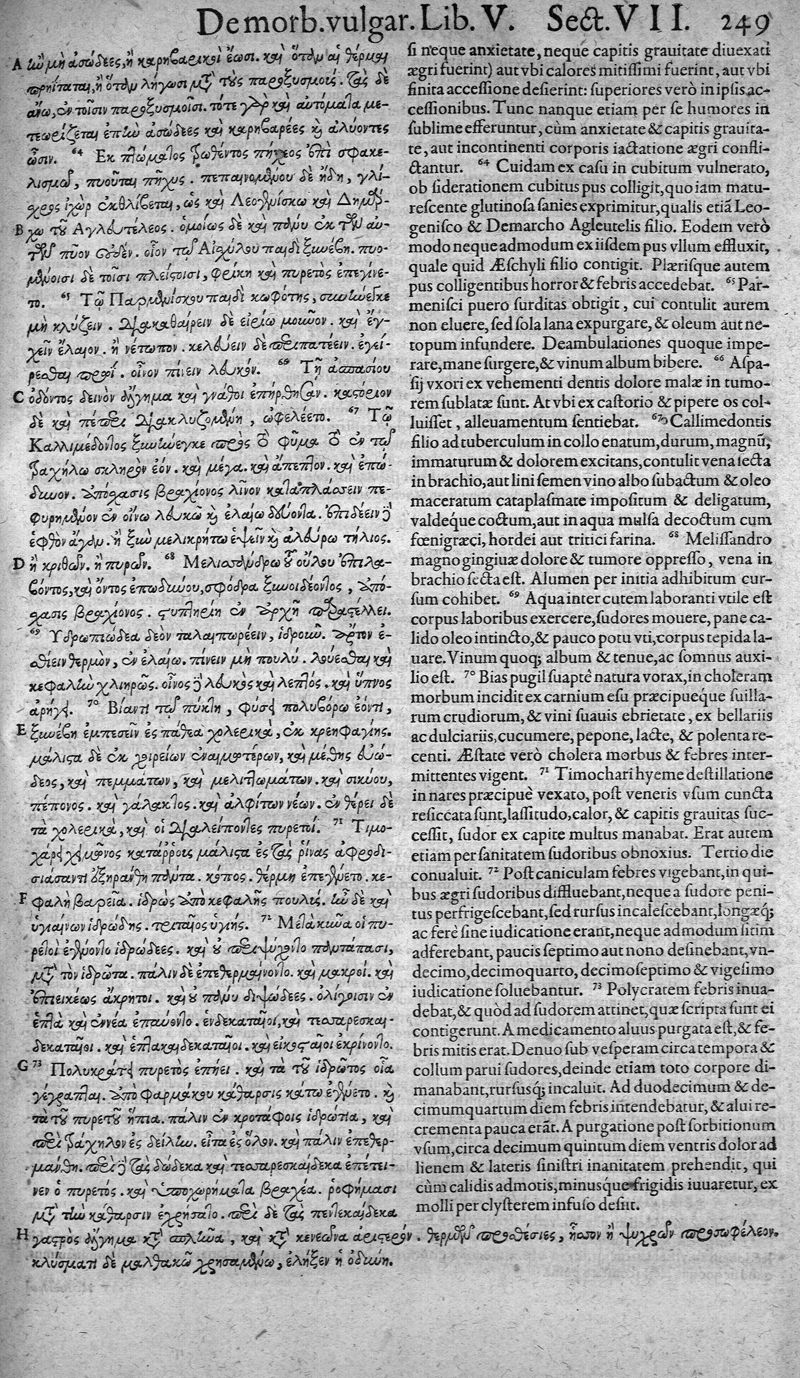 De morb. vulgar. Lib. V. Sect. VII. 249
A ἢν μὴ ἀσώδεες, ἢ καρηβαρικοὶ ἔωσι. καὶ ὅταν αἱ θέρμαι
πρηΰταται, ἢ ὅταν λήγωσι μετὰ τοὺς παροξυσμούς. τὰς δὲ
ἄνω, ἐν τοῖσιν παροξυσμοῖσι. τότε γὰρ καὶ αὐτόματα με-
τεωρίζεται ἐπὶ ἀσώδεες καὶ καρηβαρέες καὶ ἀλύοντες
ὦσιν. 64 Ἐκ πτώματος τρωθέντος πήχεος ἐπὶ σφακε-
λισμῷ, πυοῦται πῆχυς. πεπαινομένου δὲ ἤδη, γλί-
χρος ἰχὼρ ἐκθλίβεται, ὡς καὶ Λεογενίσκῳ καὶ Δημάρ-
B χῳ τοῦ Ἀγλευτέλεος. ὁμοίως δὲ καὶ πάνυ ἐκ τῶν αὐ-
τῶν πῦον οὐδέν. οἷον τῷ Αἰσχύλου παιδὶ ξυνέβη. πυο-
μένοισι δὲ τοῖσι πλείστοισι, φρίκη καὶ πυρετὸς ἐπεγίνε-
το. 65 Τῷ Παρμενίσκου παιδὶ κωφότης, συνήνεγκε
μὴ κλύζειν. διακαθαίρειν δὲ εἰρίῳ μοῦνον. καὶ ἐγ-
χεῖν ἔλαιον. ἢ νέτωπον. κελεύειν δὲ περιπατέειν. ἐγεί-
ρεσθαι πρωῒ. οἶνον πίνειν λευκόν. 66 Τῇ ἀσπασίου
C ὀδόντος δεινὸν ἄλγημα καὶ γνάθοι ἐπήρθησαν. καστόριον
δὲ καὶ πέπερι διακλυζομένη, ὠφελέετο. 67 Τῷ
Καλλιμέδοντος ξυνήνεγκε πρὸς τὸ φῦμα τὸ ἐν τῷ
τραχήλῳ σκληρὸν ἐόν. καὶ μέγα. καὶ ἄπεπτον. καὶ ἐπώ-
δυνον. ἀπόσχασις βραχίονος λίνον καταπλάσσειν πε-
φυρημένον ἐν οἴνῳ λευκῷ καὶ ἐλαίῳ δεύοντα. ἐπιδεῖν δὲ
ἑφθὸν ἄγαν. ἢ ξὺν μελικρήτῳ ἑψεῖν καὶ ἀλεύρῳ τήλιος.
D ἢ κριθῶν. ἢ πυρῶν. 68 Μελισάνδρῳ τοῦ οὔλου ἐπιλα-
βόντος, καὶ ὄντος ἐπωδύνου, σφόδρα ξυνοιδέοντος, ἀπό-
σχασις βραχίονος. στυπτηρίη ἐν ἀρχῇ παραστέλλει.
69 Ὑδρωπιώδεα δέον ταλαιπωρέειν, ἱδροῦν. ἄρτον ἐ-
σθίειν θερμὸν, ἐν ἐλαίῳ. πίνειν μὴ πουλύ. λούεσθαι κατὰ
κεφαλὴν χλιηρῶς. οἶνος δὲ λευκὸς καὶ λεπτὸς. καὶ ὕπνος
ἀρήγει. 70 Βίαντι τῷ πύκτῃ, φύσει πολυβόρῳ ἐόντι,
E ξυνέβη ἐμπεσεῖν ἐς πάθεα χολερικὰ, ἐκ κρεηφαγίης.
μάλιστα δὲ ἐκ χοιρείων ἐναιμοτέρων, καὶ μέθης εὐώ-
δεος, καὶ πεμμάτων, καὶ μελιτωμάτων. καὶ σικύου,
πέπονος. καὶ γάλακτος. καὶ ἀλφίτων νέων. ἐν θέρει δὲ
τὰ χολερικὰ, καὶ οἱ διαλείποντες πυρετοί. 71 Τιμο-
χάρει χειμῶνος κατάρροις μάλιστα ἐς τὰς ῥῖνας ἀφροδι-
σιάσαντι ἐξηράνθη πάντα. κόπος. θέρμη ἐπεγένετο. κε-
F φαλὴ βαρεῖα. ἱδρὼς ἀπὸ κεφαλῆς πουλύς. ἦν δὲ καὶ
ὑγιαίνων ἱδρώδης. τριταῖος ὑγιής. 72 Μετὰ κύνα οἱ πυ-
ρετοὶ ἐγένοντο ἱδρώδεες. καὶ οὐ περιεψύχοντο παντάπασι,
μετὰ τὸν ἱδρῶτα. πάλιν δὲ ἐπεθερμαίνοντο. καὶ μακροὶ. καὶ
ἐπιεικέως ἄκρητοι. καὶ οὐ πάνυ διψώδεες. ὀλίγοισιν ἐν
ἑπτὰ καὶ ἐννέα ἐπαύοντο. ἑνδεκαταῖοι, καὶ τεσσαρεσκαι-
δεκαταῖοι. καὶ ἑπτακαιδεκαταῖοι. καὶ εἰκοσταῖοι ἐκρίνοντο.
G 73 Πολυκράτει πυρετὸς ἐπῄει. καὶ τὰ τοῦ ἱδρῶτος οἷα
γέγραπται. ἀπὸ φαρμάκου κάθαρσις κάτω ἐγένετο. καὶ
τὰ τοῦ πυρετοῦ ἤπια. πάλιν ἐν κροτάφοις ἱδρώτια, καὶ
περὶ τράχηλον ἐς δείλην. εἶτα ἐς ὅλον. καὶ πάλιν ἐπεθερ-
μάνθη. περὶ δὲ τὰς δώδεκα καὶ τεσσαρεσκαίδεκα ἐπέτει-
νεν ὁ πυρετὸς. καὶ ὑποχωρήματα βραχέα. ῥοφήμασι
μετὰ τὴν κάθαρσιν ἐχρήσατο. περὶ δὲ τὰς πεντεκαίδεκα
H γαστρὸς ἄλγημα κατὰ σπλῆνα, καὶ κατὰ κενεῶνα ἀριστερόν. θερμῶν προσθέσιες, ἧσσον ἢ ψυχρῶν προσωφέλεον.
κλύσματι δὲ μαλθακῷ χρησαμένῳ, ἔληξεν ἡ ὀδύνη.
ſi neque anxietate, neque capitis grauitate diuexati
ægri fuerint) aut vbi calores mitiſſimi fuerint, aut vbi
finita acceſſione deſierint: ſuperiores verò in ipſis, ac-
ceſſionibus. Tunc nanque etiam per ſe humores in
ſublime efferuntur, cùm anxietate & capitis grauita-
te, aut incontinenti corporis iactatione ægri confli-
ctantur. 64 Cuidam ex caſu in cubitum vulnerato,
ob ſiderationem cubitus pus colligit, quo iam matu-
reſcente glutinoſa ſanies exprimitur, qualis etiã Leo-
geniſco & Demarcho Agleutelis filio. Eodem verò
modo neque admodum ex iiſdem pus vllum effluxit,
quale quid Æſchyli filio contigit. Plæriſque autem
pus colligentibus horror & febris accedebat. 65 Par-
meniſci puero ſurditas obtigit, cui contulit aurem
non eluere, ſed ſola lana expurgare, & oleum aut ne-
topum infundere. Deambulationes quoque impe-
rare, mane ſurgere, & vinum album bibere. 66 Aſpa-
ſij vxori ex vehementi dentis dolore malæ in tumo-
rem ſublatæ ſunt. At vbi ex caſtorio & pipere os col-
luiſſet, alleuamentum ſentiebat. 67 Callimedontis
filio ad tuberculum in collo enatum, durum, magnũ,
immaturum & dolorem excitans, contulit vena ſecta
in brachio, aut lini ſemen vino albo ſubactum & oleo
maceratum cataplaſmate impoſitum & deligatum,
valdeque coctum, aut in aqua mulſa decoctum cum
fœnigræci, hordei aut tritici farina. 68 Meliſſandro
magno gingiuæ dolore & tumore oppreſſo, vena in
brachio ſecta eſt. Alumen per initia adhibitum cur-
ſum cohibet. 69 Aqua inter cutem laboranti vtile eſt
corpus laboribus exercere, ſudores mouere, pane ca-
lido oleo intincto, & pauco potu vti, corpus tepida la-
uare. Vinum quoq; album & tenue, ac ſomnus auxi-
lio eſt. 70 Bias pugil ſuapte natura vorax, in choleram
morbum incidit ex carnium eſu præcipueque ſuilla-
rum crudiorum, & vini ſuauis ebrietate, ex bellariis
ac dulciariis, cucumere, pepone, lacte, & polenta re-
centi. Æſtate verò cholera morbus & febres inter-
mittentes vigent. 71 Timochari hyeme deſtillatione
in nares præcipuè vexato, poſt veneris vſum cuncta
reſiccata ſunt, laſſitudo, calor, & capitis grauitas ſuc-
ceſſit, ſudor ex capite multus manabat. Erat autem
etiam per ſanitatem ſudoribus obnoxius. Tertio die
conualuit. 72 Poſt caniculam febres vigebant, in qui-
bus ægri ſudoribus diffluebant, neque a ſudore peni-
tus perfrigeſcebant, ſed rurſus incaleſcebant, longæq;
ac ferè ſine iudicatione erant, neque admodum ſitim
adferebant, paucis ſeptimo aut nono deſinebant, vn-
decimo, decimoquarto, decimoſeptimo & vigeſimo
iudicatione ſoluebantur. 73 Polycratem febris inua-
debat, & quòd ad ſudorem attinet, quæ ſcripta ſunt ei
contigerunt. A medicamento aluus purgata eſt, & fe-
bris mitis erat. Denuo ſub veſperam circa tempora &
collum parui ſudores, deinde etiam toto corpore di-
manabant, rurſuſq; incaluit. Ad duodecimum & de-
cimumquartum diem febris intendebatur, & alui re-
crementa pauca erãt. A purgatione poſt ſorbitionum
vſum, circa decimum quintum diem ventris dolor ad
lienem & lateris ſiniſtri inanitatem prehendit, qui
cùm calidis admotis, minusque frigidis iuuaretur, ex
molli per clyſterem infuſo deſiit.